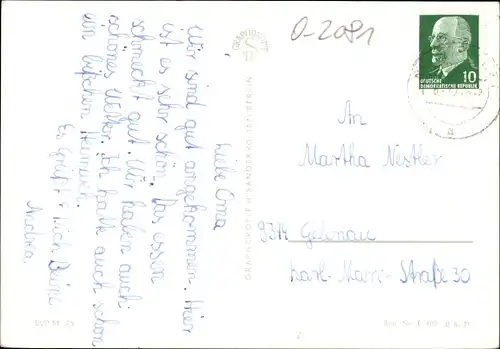 Liebe Oma
Wir sind gut angekommen. Hier
ist es sehr schön. Das essen
schmeckt gut. Wir haben auch
schönes Wetter. Ich hatte auch schon
ein bißchen Heimweh.
Es Grüßt Dich Deine
Andrea.
GRAPHOKOPIE H. SANDER KG
BERLIN
O-2091
10
DEUTSCHE
DEMOKRATISCHE REPUBLIK
An
Martha Nestler
9314 Gelenau
Karl-Marx-Straße 30